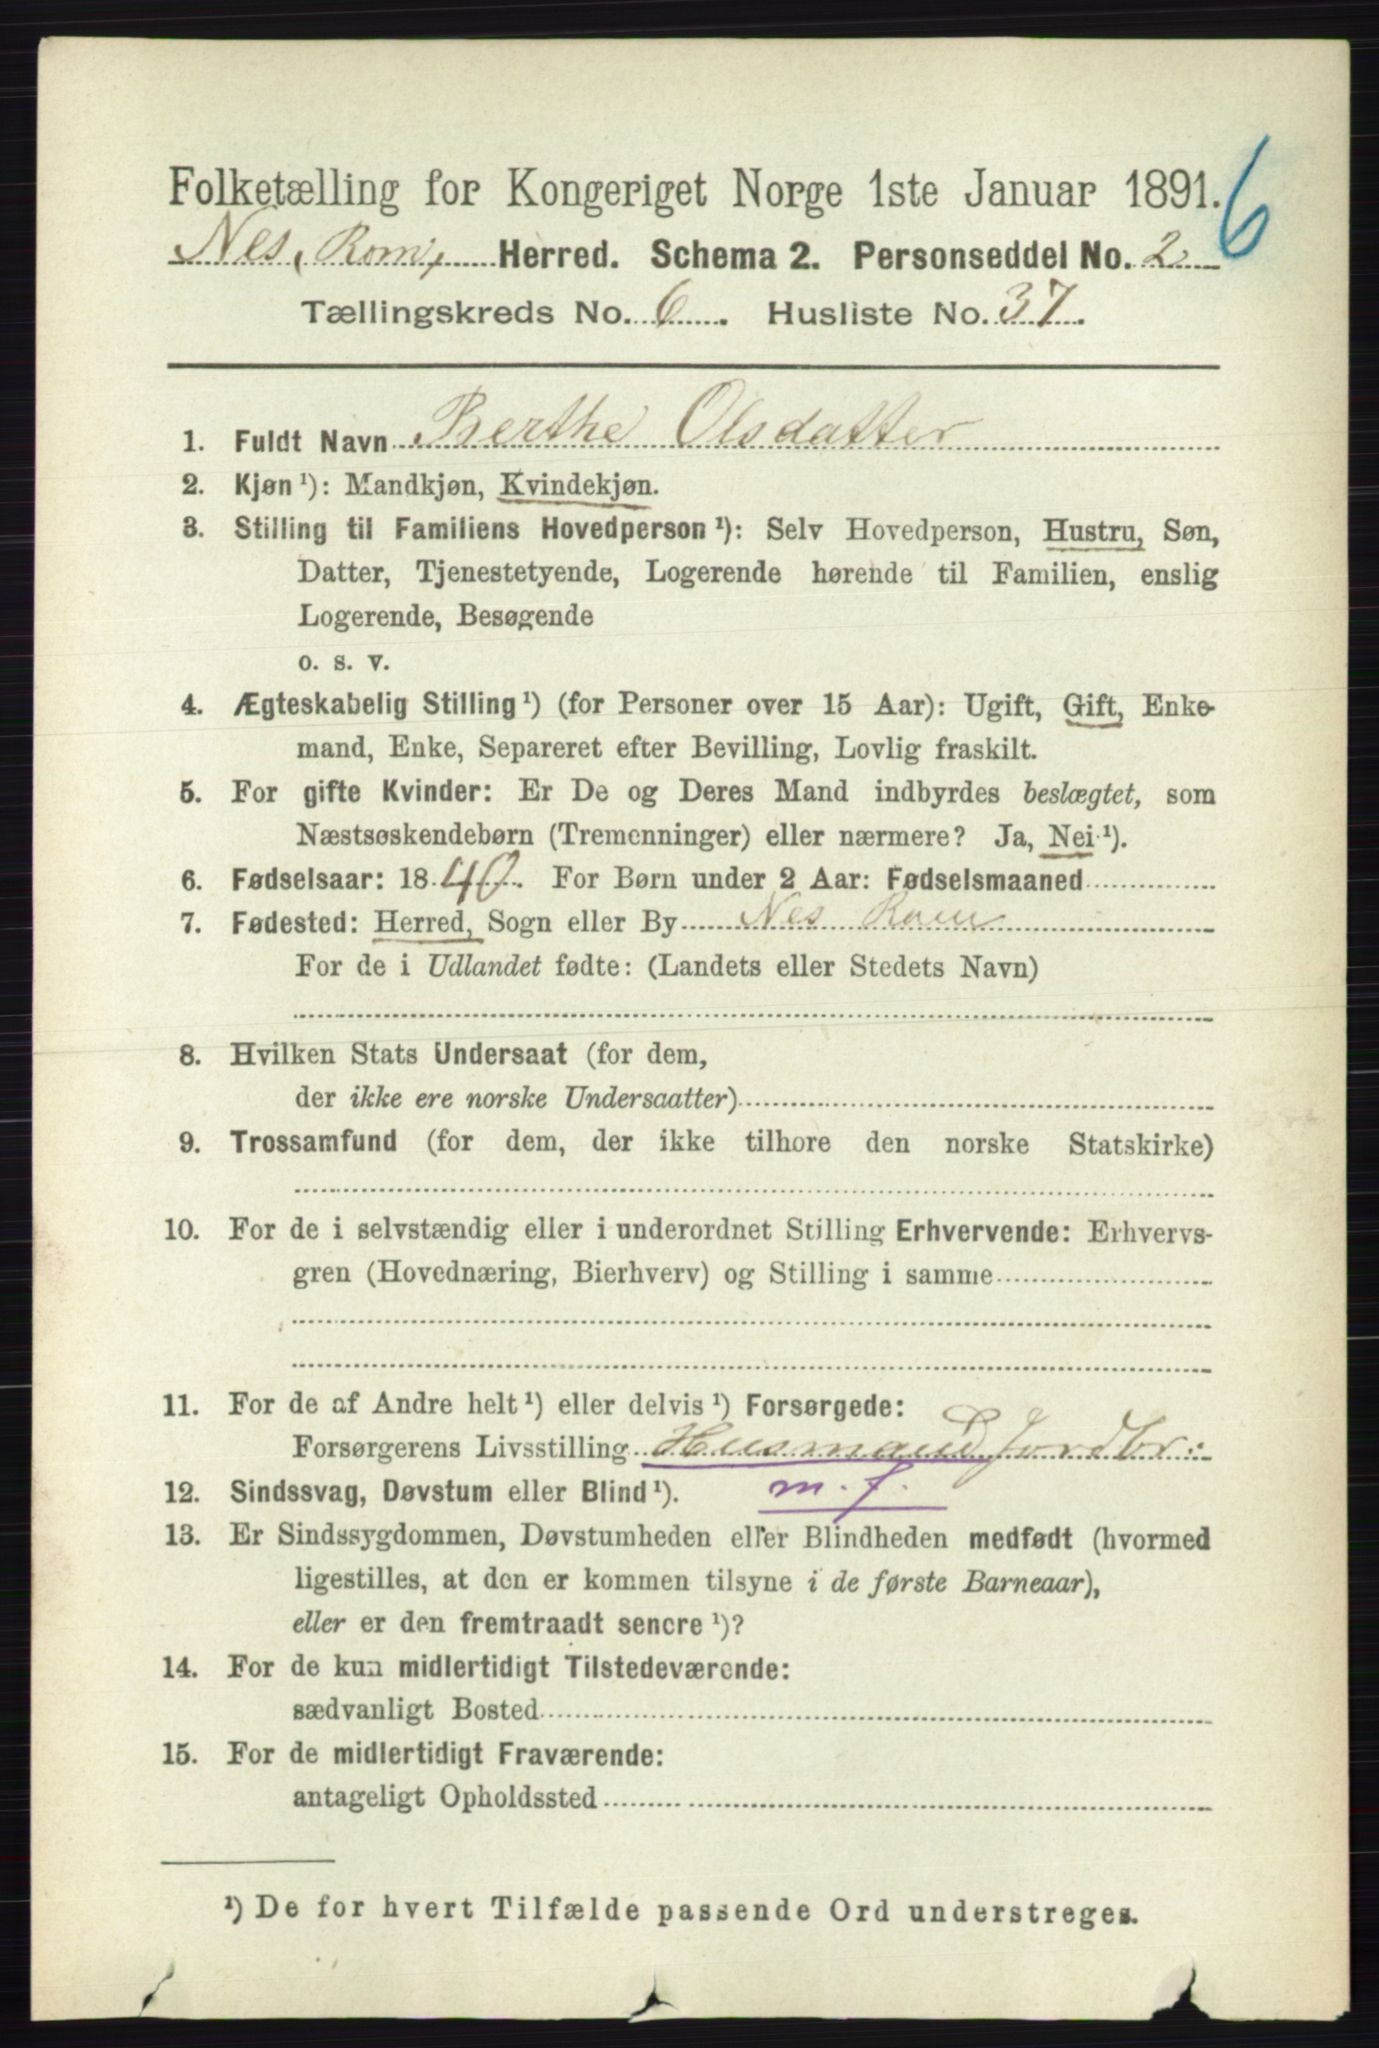 Folketælling for Kongeriget Norge 1ste Januar 1891.
6
Nes, Rom, Herred. Schema 2. Personseddel No. 2
Tællingskreds No. 6. Husliste No. 37.
1. Fuldt Navn Berthe Olsdatter
2. Kjøn ¹): Mandkjøn, Kvindekjøn.
3. Stilling til Familiens Hovedperson ¹): Selv Hovedperson, Hustru, Søn,
Datter, Tjenestetyende, Logerende hørende til Familien, enslig
Logerende, Besøgende
o. s. v.
4. Ægteskabelig Stilling ¹) (for Personer over 15 Aar): Ugift, Gift, Enke-
mand, Enke, Separeret efter Bevilling, Lovlig fraskilt.
5. For gifte Kvinder: Er De og Deres Mand indbyrdes beslægtet, som
Næstsøskendebørn (Tremenninger) eller nærmere? Ja, Nei ¹).
6. Fødselsaar: 1840. For Børn under 2 Aar: Fødselsmaaned
7. Fødested: Herred, Sogn eller By Nes Rom
For de i Udlandet fødte: (Landets eller Stedets Navn)
8. Hvilken Stats Undersaat (for dem,
der ikke ere norske Undersaatter)
9. Trossamfund (for dem, der ikke tilhøre den norske Statskirke)
10. For de i selvstændig eller i underordnet Stilling Erhvervende: Erhvervs-
gren (Hovednæring, Bierhverv) og Stilling i samme
11. For de af Andre helt ¹) eller delvis ¹) Forsørgede:
Forsørgerens Livsstilling Husmand Jordbr:
m. f.
12. Sindssvag, Døvstum eller Blind ¹).
13. Er Sindssygdommen, Døvstumheden eller Blindheden medfødt (hvormed
ligestilles, at den er kommen tilsyne i de første Barneaar),
eller er den fremtraadt senere ¹)?
14. For de kun midlertidigt Tilstedeværende:
sædvanligt Bosted
15. For de midlertidigt Fraværende:
antageligt Opholdssted
¹) De for hvert Tilfælde passende Ord understreges.